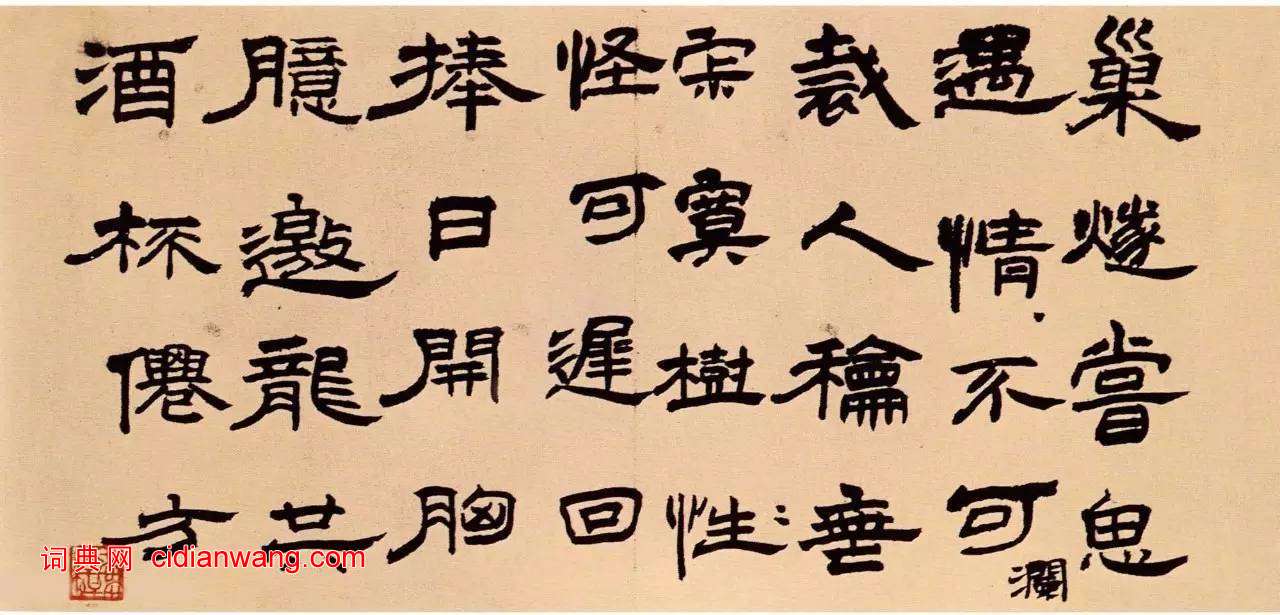 巢燧嘗思
遇情不可
瀾
裁人龢垂
寞樹性
怪可遲回
捧日開胸
臆邀龍共
酒杯僊方
词典网 cidianwang.com